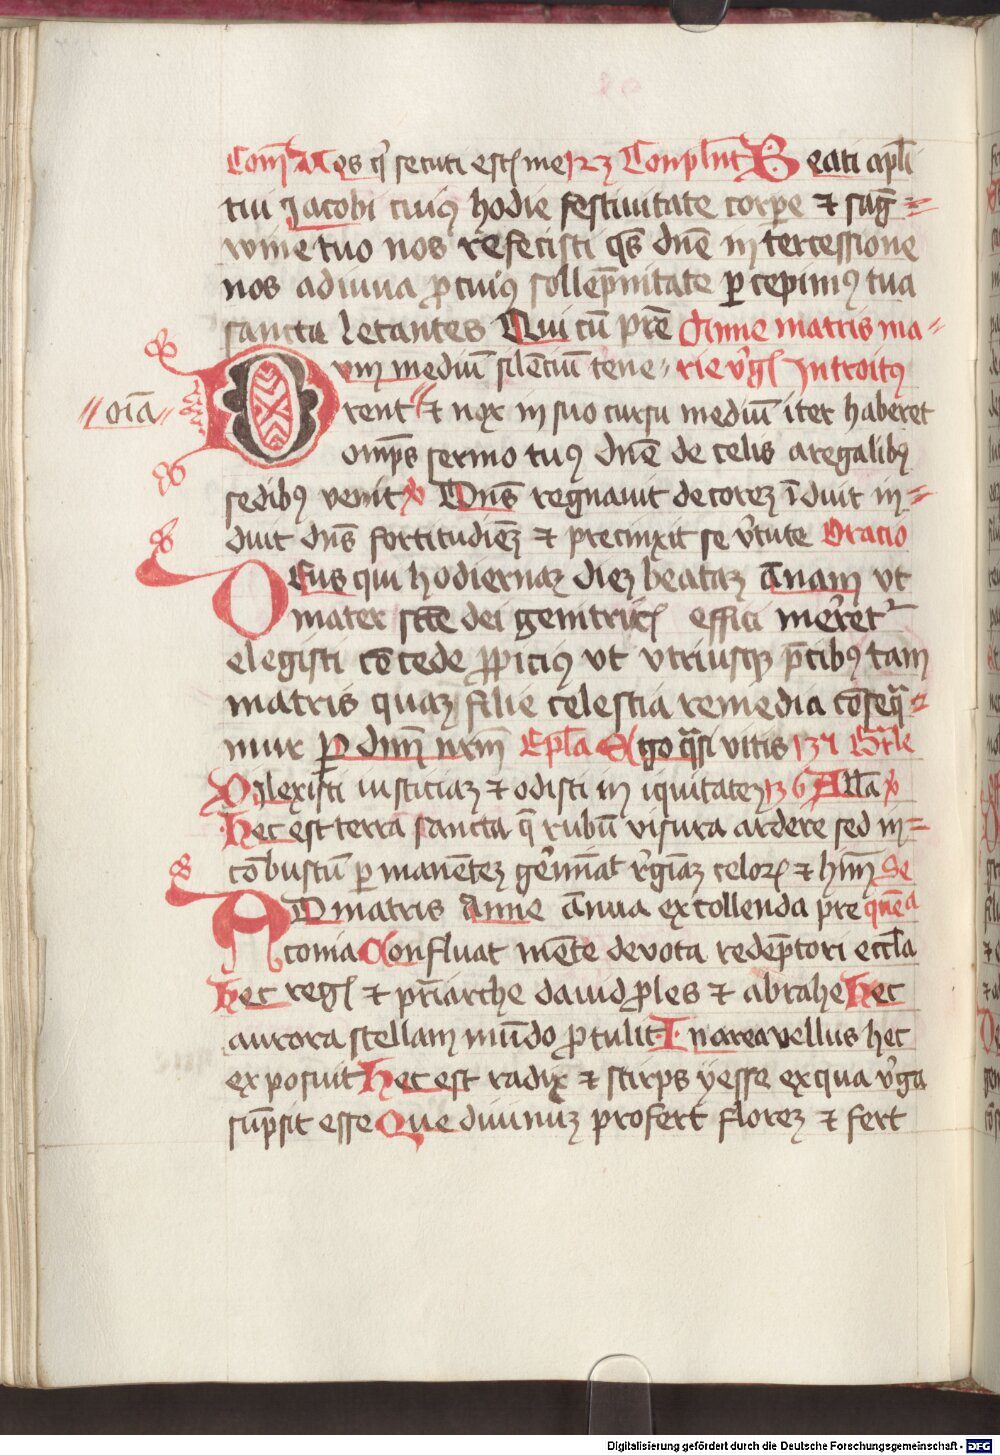 Com̄ Uos q̇ secuti est{is} me 123 Conpl̄nt Beati ap̄li
tui Jacobi cuiꝰ hodie festiuitate corꝑe ⁊ sag̅=
wine tuo nos refecisti q̄s dn̄e in tercessione
nos adiuua ꝓ cuiꝰ sollep̄nitate ꝑcepimꝰ tua
sancta letantes Qui cū pr̄e Anne matris ma=
Dum mediū silēciū tēne= rie v̓gī{s} Introitꝰ
//oīa// rent ⁊ nox in suo cursu mediū iter haberet
omīps sermo tuꝰ dn̄e de celis aregalibꝰ
sedibꝰ venit ꝟ Dn̄s regnauit decoreꝫ īduit in=
duit dn̄s fortitudīeꝫ ⁊ precinxit se v̓tute Oracio
DEus qui hodiernaꝫ dieꝫ beataꝫ Annam vt
mater sc̄te dei genitric{is} effici mer̓et᷑
elegisti cōcede ꝓpiciꝰ vt vtriusqꝫ p̄cibꝰ tam
matris quaꝫ filie celestia remedia cōseq̄=
mur ꝑ dnm̄ nrm̄ Ep̄la Ego q̄si vitis 137 Gr̄le
Dilexisti iusticiaꝫ ⁊ odisti in iquitateꝫ 136 All̄a ꝟ
Hec est terra sancta q̄ rubū visura ardere sed in=
cōbustū ꝑmanēteꝫ ger̓mīat v̓gīaꝫ celoꝝ ⁊ hīm̄ Se
AD matris Anne Annua excollenda pre quēcia
conia Confluat mēte devota redēptori eccl̄a
Hec reg{is} ⁊ pr̄iarche dauid ꝓles ⁊ abrahe Hec
aurora stellam mūdo ꝓtulit In area vellus hec
exposuit Hec est radix ⁊ stirps yesse ex qua v̓ga
sūpsit esse Que diuinuꝫ profert floreꝫ ⁊ fert
Digitalisierung gefördert durch die Deutsche Forschungsgemeinschaft - DFG